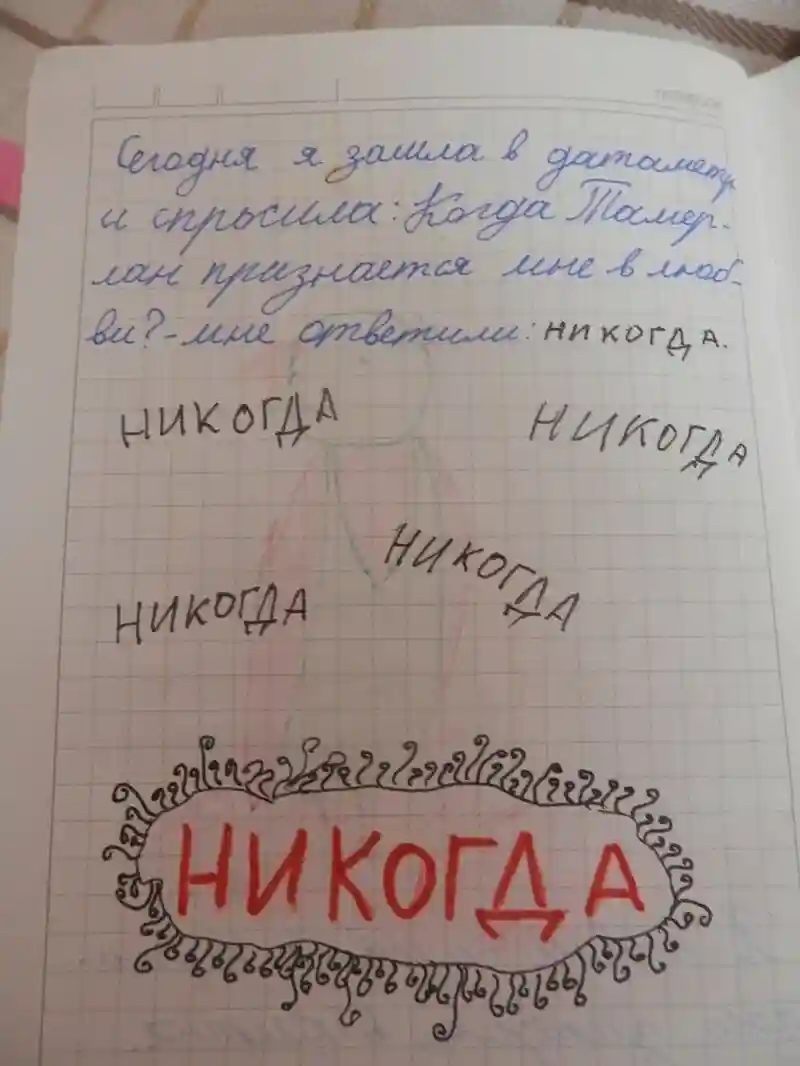 Сегодня я зашла в датаметр
и спросила: Когда Тамер-
лан признается мне в люб-
ви? - мне ответили: НИКОГДА.
НИКОГДА НИКОГДА
НИКОГДА
НИКОГДА
НИКОГДА